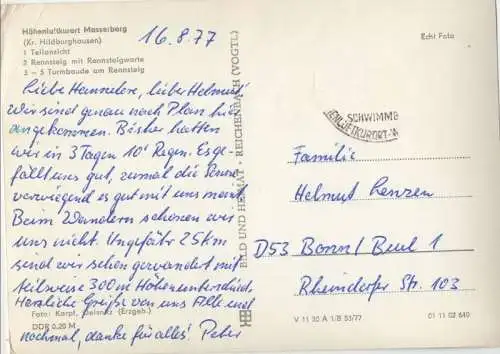 Höhenluftkurort Masserberg
(Kr. Hildburghausen)
1 Teilansicht
2 Rennsteig mit Rennsteigwarte
3 – 5 Turmbaude am Rennsteig
16.8.77
Liebe Hannelore, lieber Helmut!
Wir sind genau nach Plan hier
angekommen. Bisher hatten
wir in 3 Tagen 10' Regen. Es ge-
fällt uns gut, zumal die Sonne
vorwiegend es gut mit uns meint
Beim Wandern schonen wir
uns nicht. Ungefähr 25km
sind wir schon gewandert mit
teilweise 300m Höhenunterschied.
Herzliche Grüße von uns Alle und
nochmal, danke für alles! Peter
Foto: Karpf, Oelsnitz (Erzgeb.)
DDR 0,20 M
BILD UND HEIMAT · REICHENBACH (VOGTL)
Echt Foto
SCHWIMMB
ENLUFTKURORT-M
Familie
Helmut Lenzen
D53 Bonn/Beul 1
Rheindorfer Str. 103
V 11 30 A 1/B 53/77
01 11 02 640